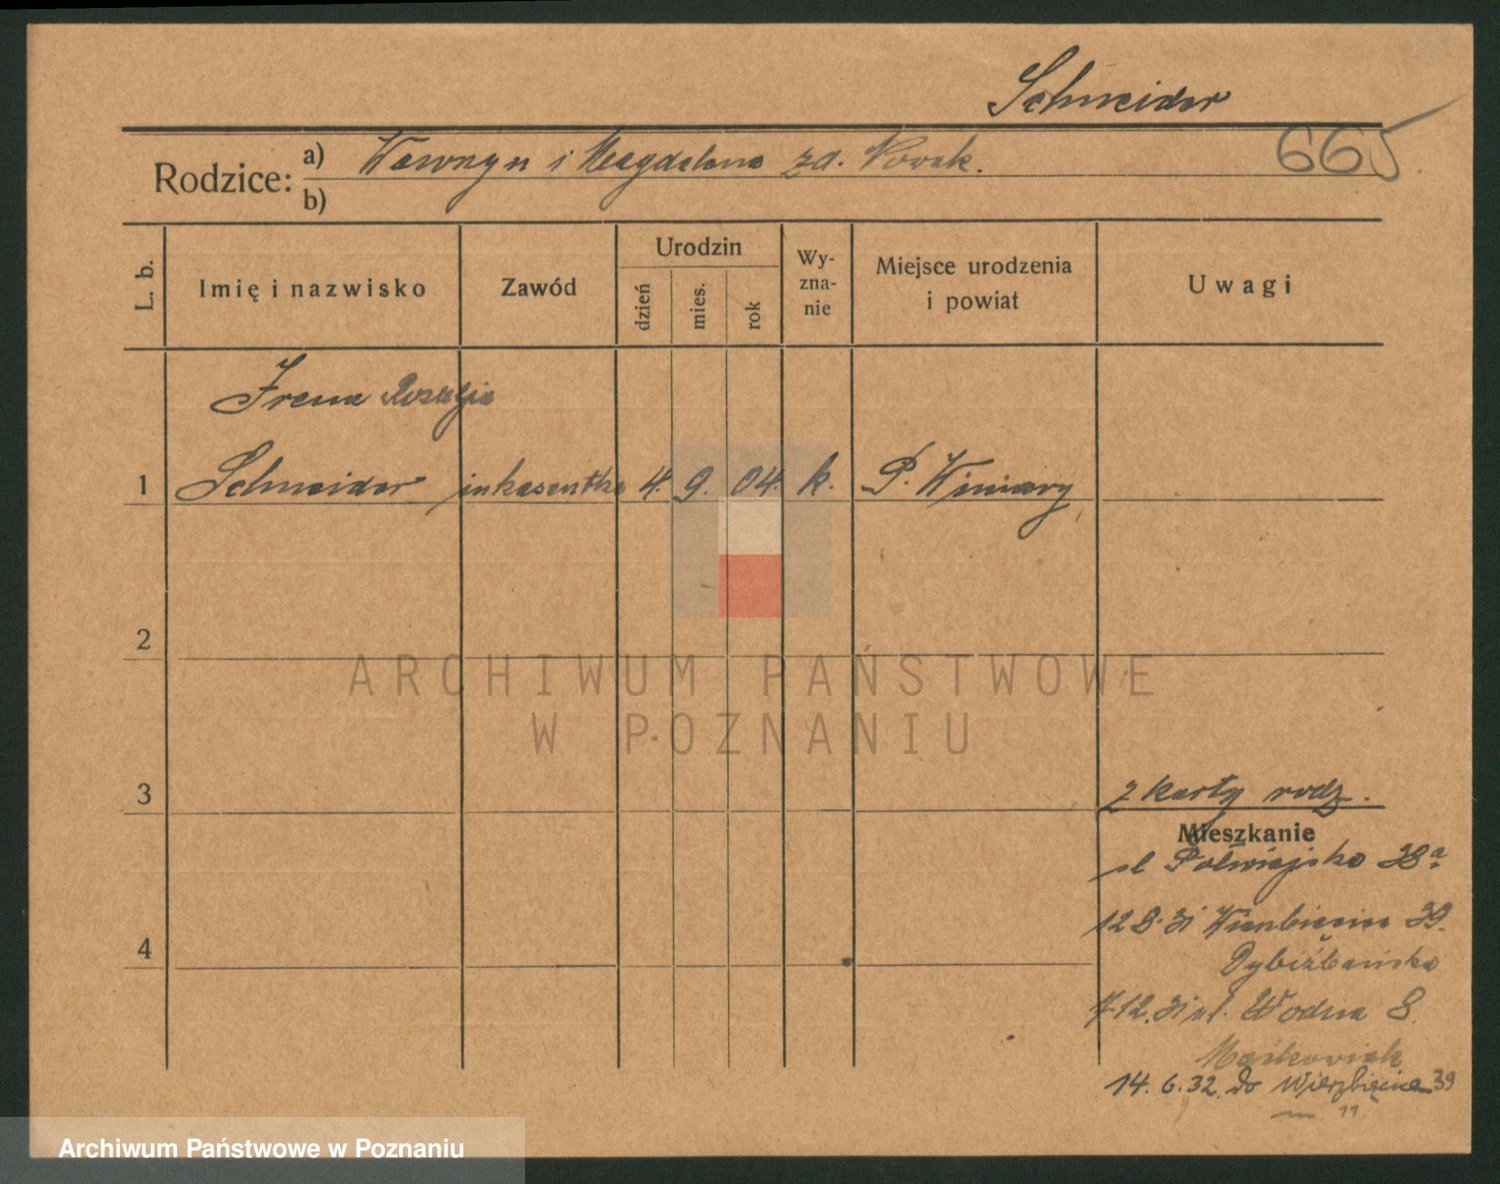 Schneider
665
Rodzice: a) Wawrzyn i Magdalena zd. Nowak.
b)
L. b.
Imię i nazwisko
Zawód
Urodzin
dzień
mies.
rok
Wy-
zna-
nie
Miejsce urodzenia
i powiat
Uwagi
Irena Rozalja
1 Schneider inkasentka 4. 9. 04. k. P. Winiary
2
ARCHIWUM PAŃSTWOWE
W POZNANIU
3
z karty rodz.
Mieszkanie
ul Półwiejska 38a
12 8. 31 Wierzbięcice 39.
4
7 12. 31 ul. Wodna 8
Maćkowiak
14. 6. 32. do Wierzbięcice 39
11
Archiwum Państwowe w Poznaniu